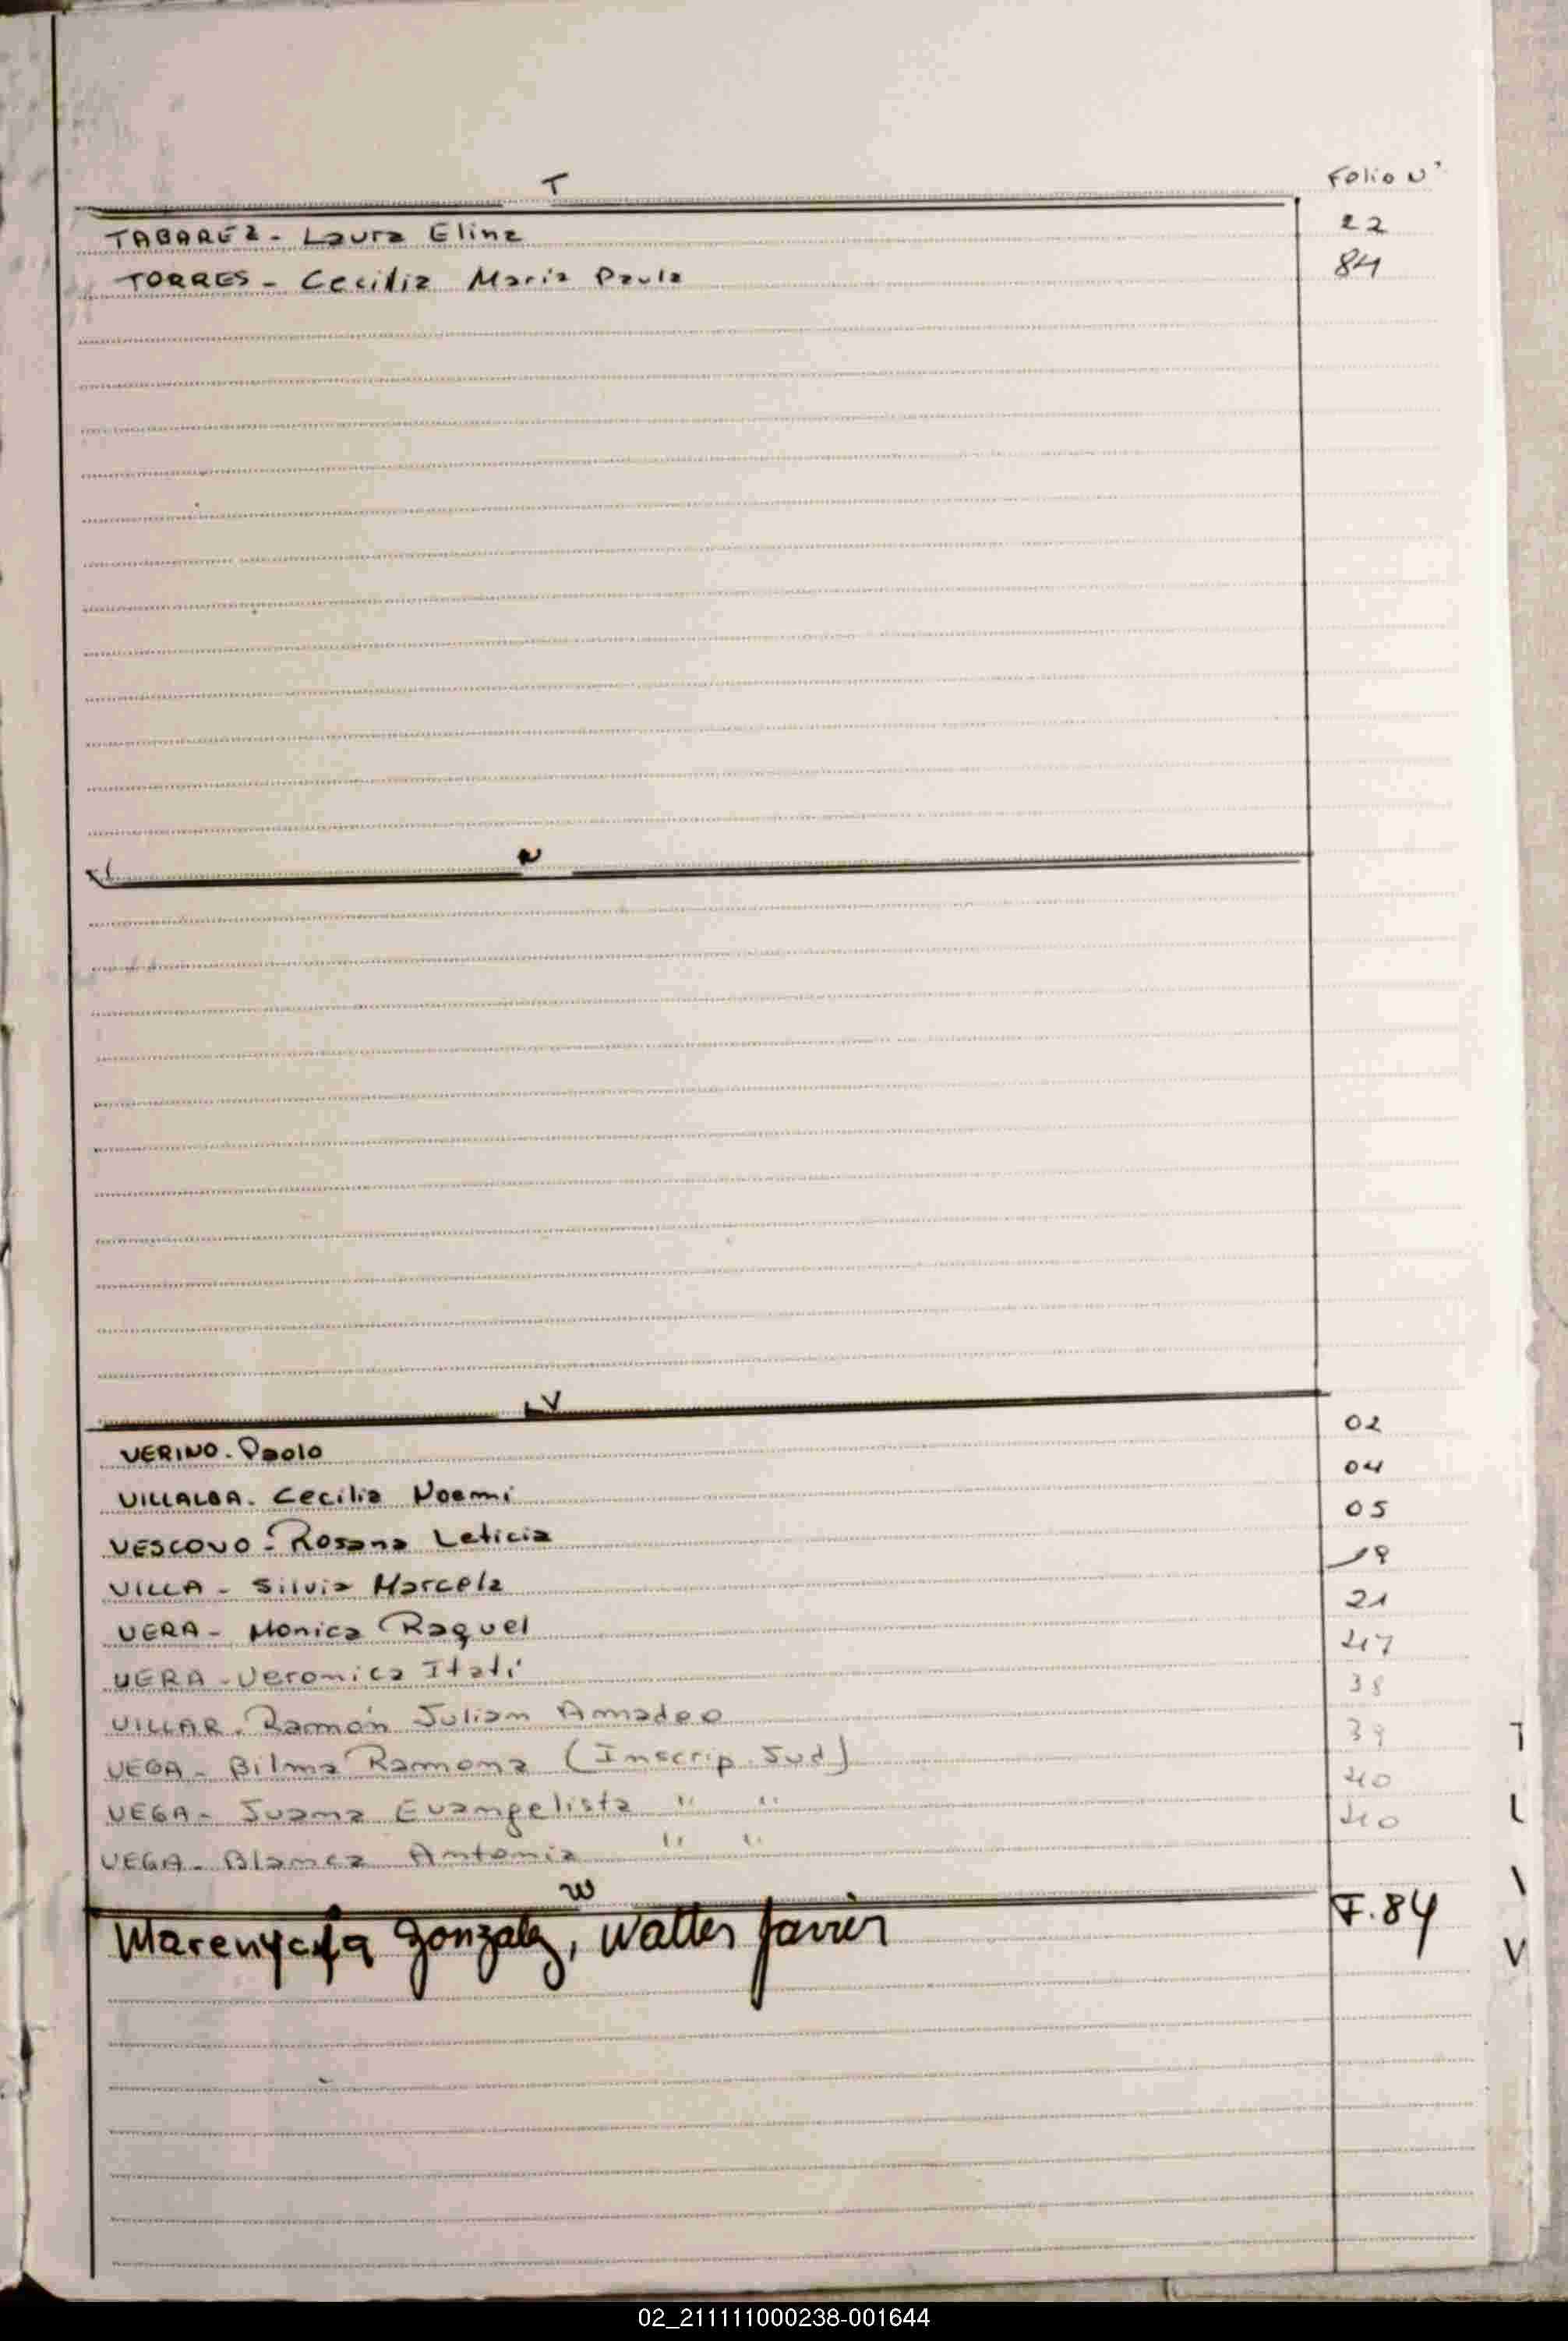 T Folio Nº
TABAREZ - Laura Elina 22
TORRES - Cecilia Maria Paula 84
U
V
VERINO - Paolo 02
VILLALBA - Cecilia Noemi 04
VESCOVO - Rosana Leticia 05
VILLA - Silvia Marcela 19
VERA - Monica Raquel 21
VERA - Veronica Itati 27
VILLAR - Ramón Julian Amadeo 38
VEGA - Bilma Ramona (Inscrip. Jud) 39
VEGA - Juana Evangelista " " 40
VEGA - Blanca Antonia " " 40
W
Gonzalez, Walter Javier F. 84
02_211111000238-001644